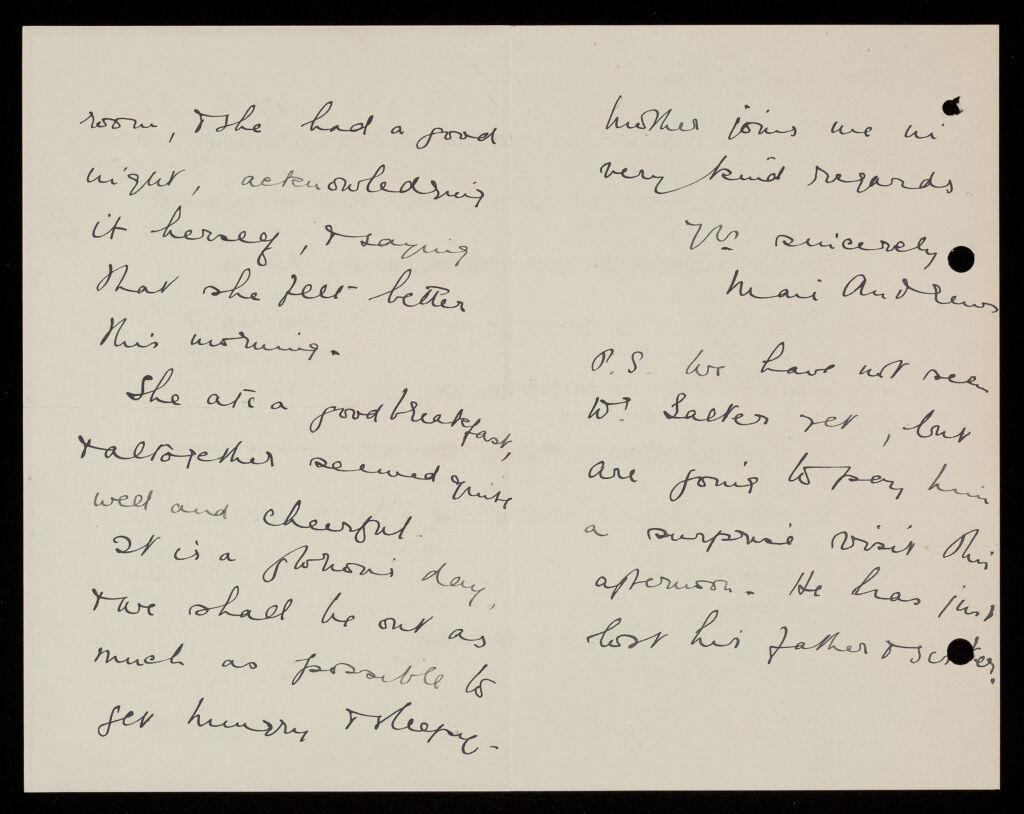 room, & she had a good
night, acknowledging
it herself, & saying
that she felt better
this morning.
She ate a good breakfast,
& altogether seemed quite
well and cheerful.
It is a glorious day,
& we shall be out as
much as possible to
get hungry & sleepy.
Mother joins me in
very kind regards
Yrs sincerely
Mari Andrews
P.S. We have not seen
Dr Salter yet, but
are going to pay him
a surprise visit this
afternoon. He has just
lost his father & sister.